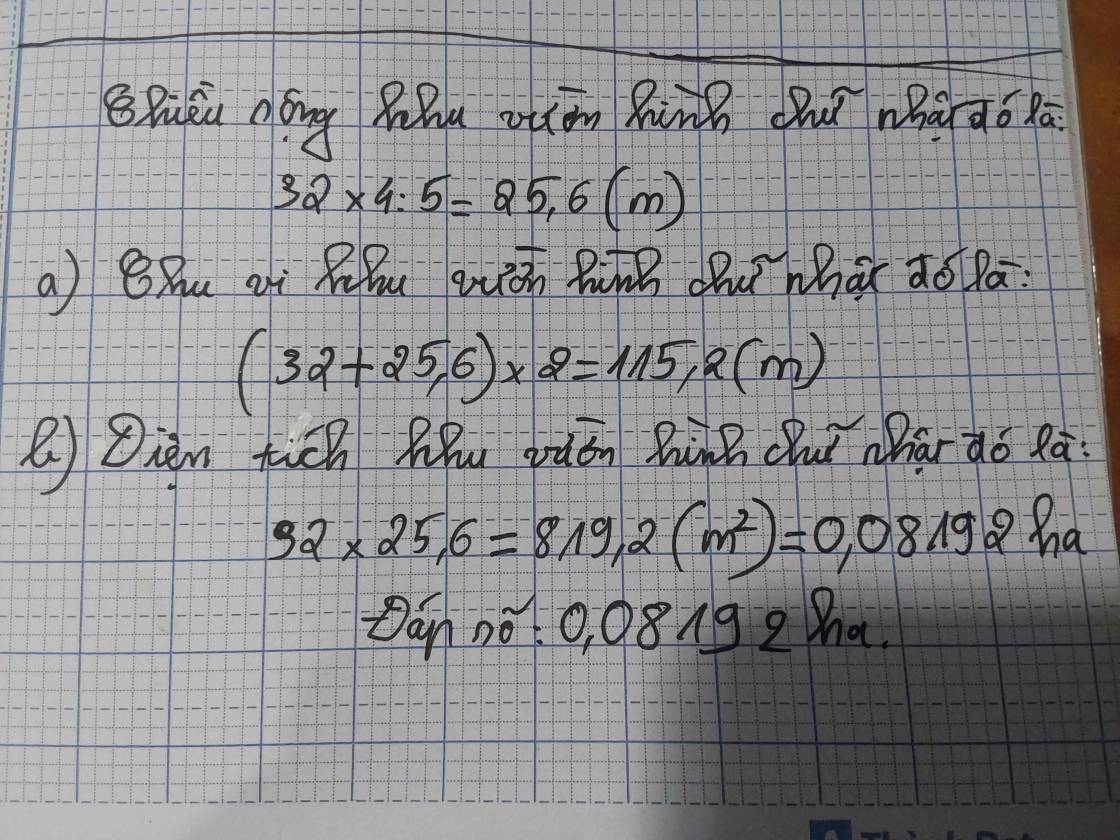 Chiều rộng khu vườn hình chữ nhật đó là:
32 × 4 : 5 = 25,6 (m)
a) Chu vi khu vườn hình chữ nhật đó là:
(32 + 25,6) × 2 = 115,2 (m)
b) Diện tích khu vườn hình chữ nhật đó là:
32 × 25,6 = 819,2 (m²) = 0,08192 ha
Đáp số: 0,08192 ha.